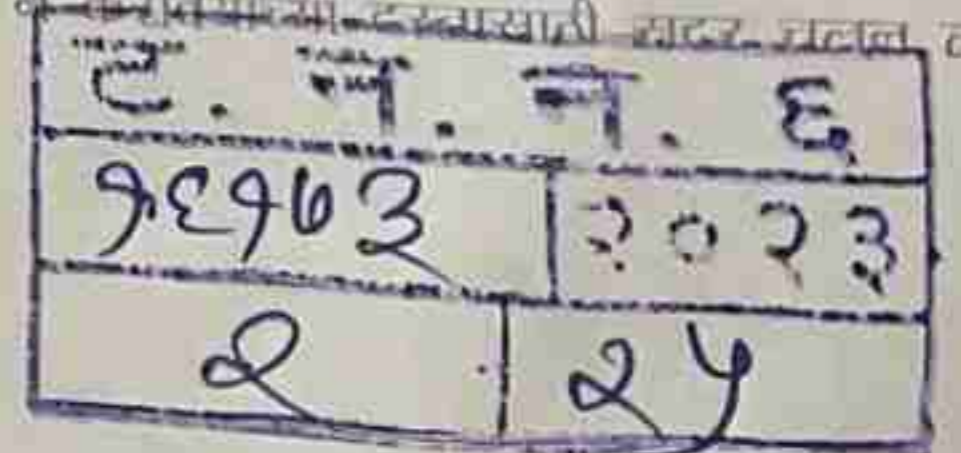 ट. न. न. ६
१६१७३ २०२३
२ २५